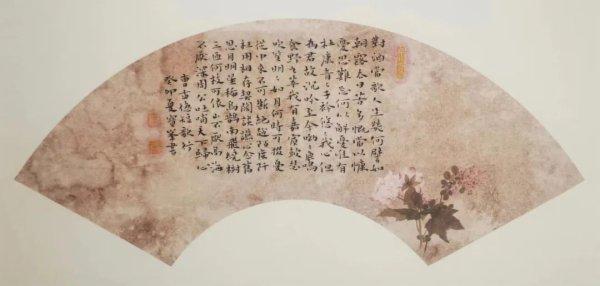 對酒當歌人生幾何譬如
朝露去日苦多慨當以慷
憂思難忘何以解憂唯有
杜康青々子衿悠々我心但
為君故沉吟至今呦々鹿鳴
食野之苹我有嘉賓鼓瑟
吹笙明々如月何時可掇憂
從中來不可斷絕越陌度阡
枉用相存契闊談讌心念舊
恩月明星稀烏鵲南飛繞樹
三匝何枝可依山不厭高海
不厭深周公吐哺天下歸心
曹孟德短歌行
癸卯夏寶峯書